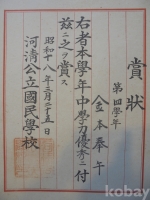 賞狀
第四學年
金本奉午
右者本學年中學力優秀ニ付
玆ニ之ヲ賞ス
昭和十八年三月二十五日
河清公立國民學校
kobay